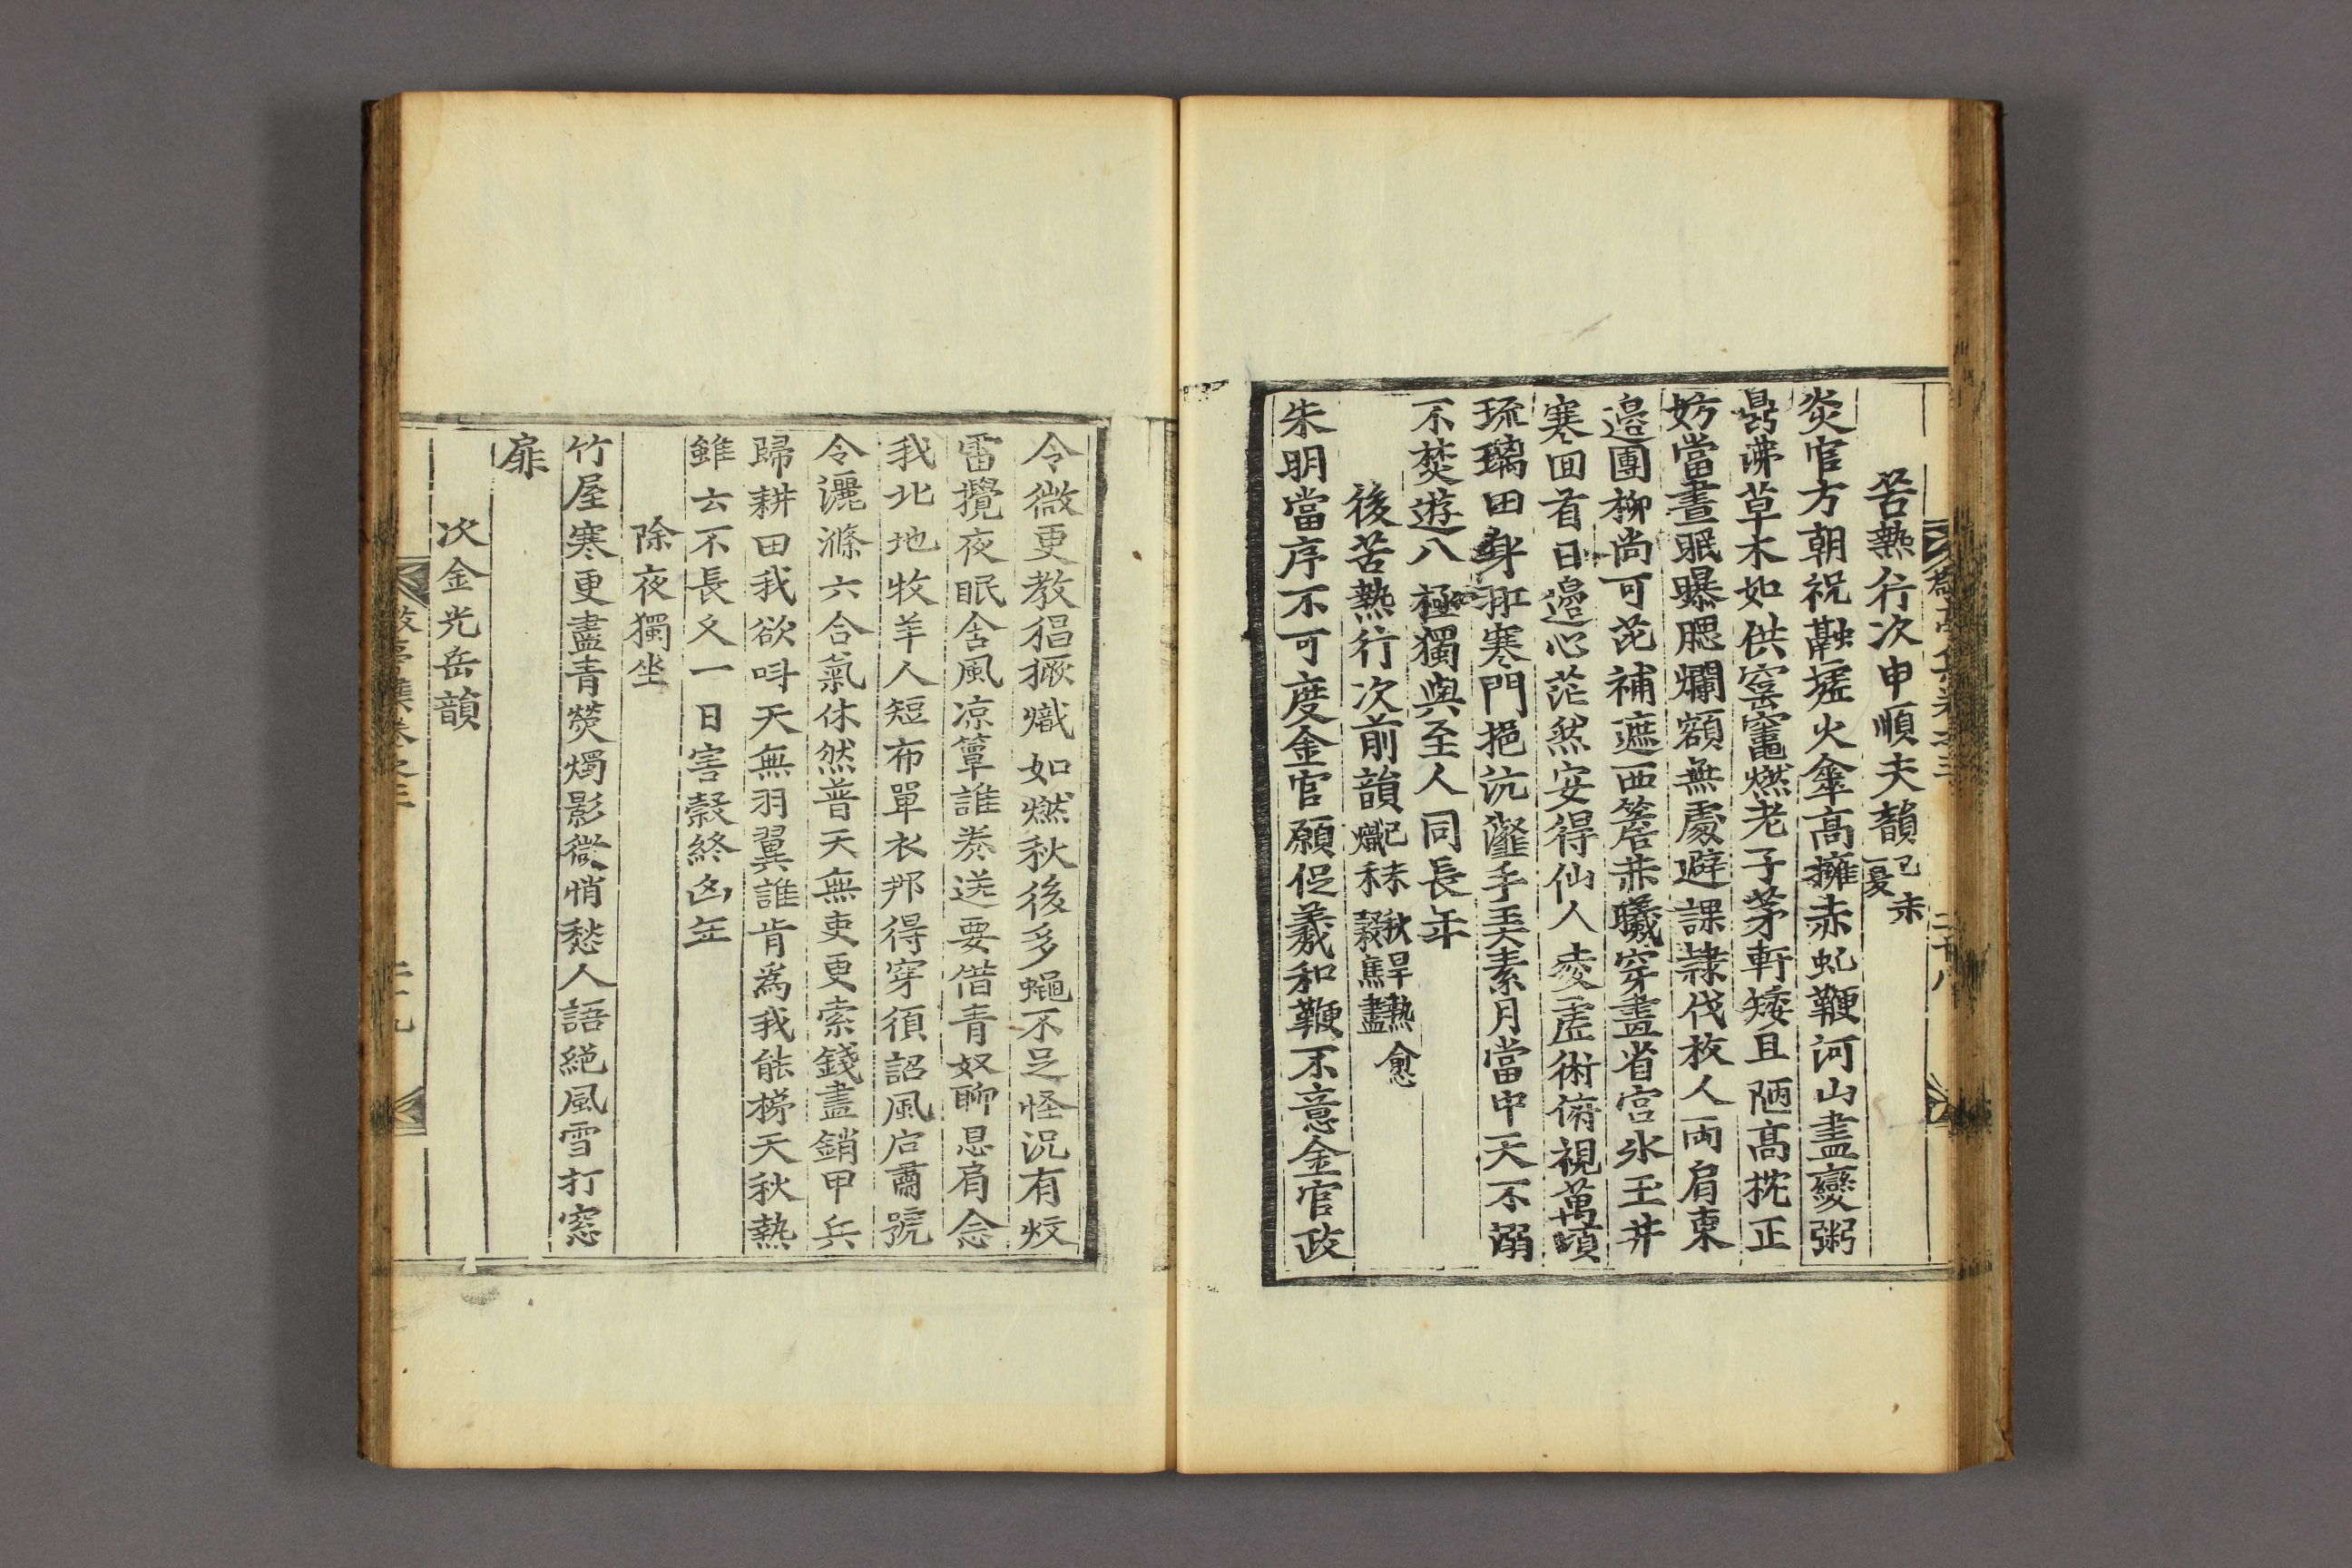 苦熱行次申順夫韻 已未夏
炎官方朝祝融墟火傘高擁赤虬鞭河山盡變粥
沸草木如供窰竈燃老子茅軒矮且陋高枕正
妨當晝眠曝腮爛額無處避課隷伐枚人兩肩東
邉團柳尚可芘補遮西簷恭曦穿盡省宫氷玉井
寒回首日邉心茫然安得仙人凌虚術俯視萬頃
琉璃田身扣寒門挹沆瀣手弄素月當中天不溺
不焚遊八極獨與至人同長年
後苦熱行次前韻 已未秋旱熱愈熾禾穀焦盡
朱明當序不可度金官願促羲和鞭不意金官政
令微更教猖獗熾如燃秋後多蠅不足怪況有蚊
雷攪夜眠含風凉簟誰券送要借青奴聊息肩念
我北地牧羊人短布單衣那得穿須詔風后肅號
令灑滌六合氣休然普天無吏更索錢盡銷甲兵
歸耕田我欲呌天無羽翼誰肯爲我能梯天秋熱
雖云不長久一日害穀終凶年
除夜獨坐
竹屋寒更盡青熒燭影微悄愁人語絕風雪打窓
扉
次金光岳韻